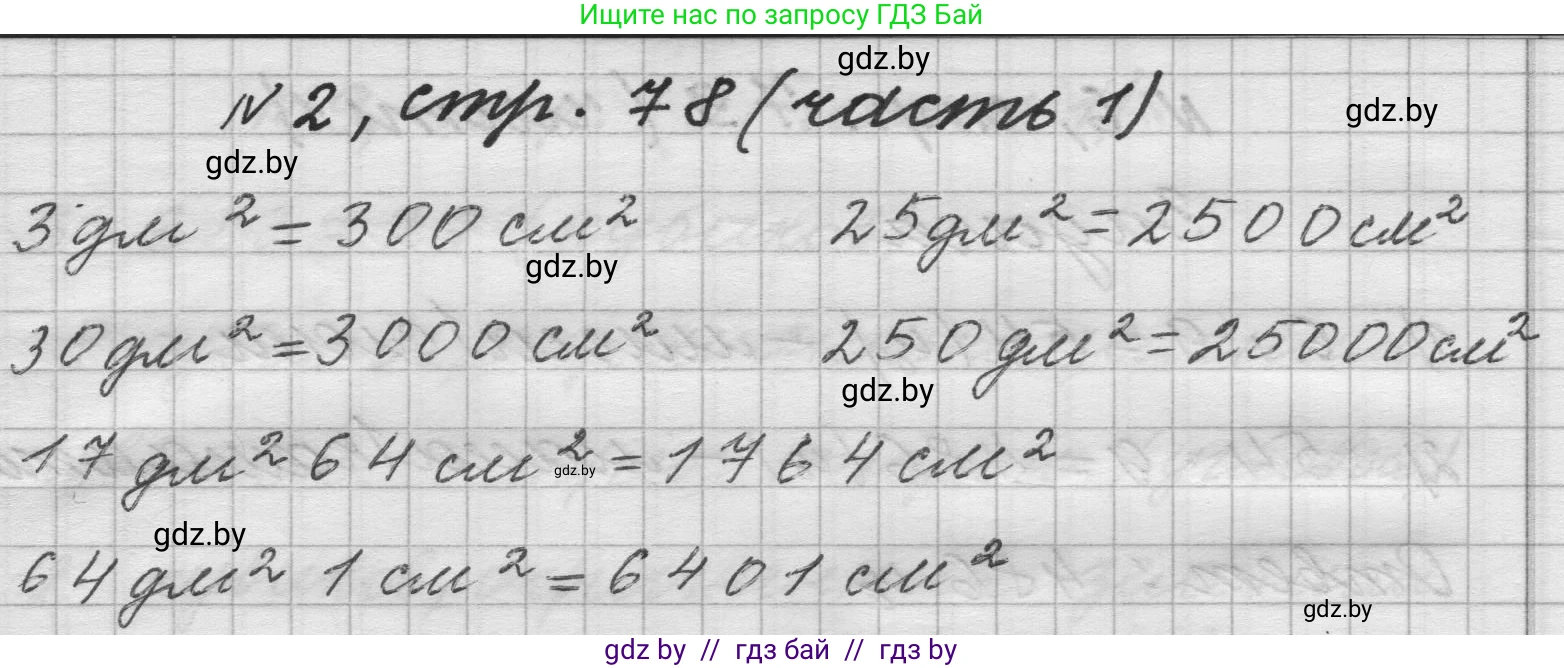 Ищите нас по запросу ГДЗ Бай
gdz.by
№ 2, стр. 78 (часть 1)
gdz.by
gdz.by
3 дм² = 300 см² 25 дм² = 2500 см²
gdz.by
30 дм² = 3000 см² 250 дм² = 25000 см²
gdz.by
17 дм² 64 см² = 1764 см²
gdz.by
gdz.by
64 дм² 1 см² = 6401 см²
gdz.by
gdz by // гдз бай // гдз by